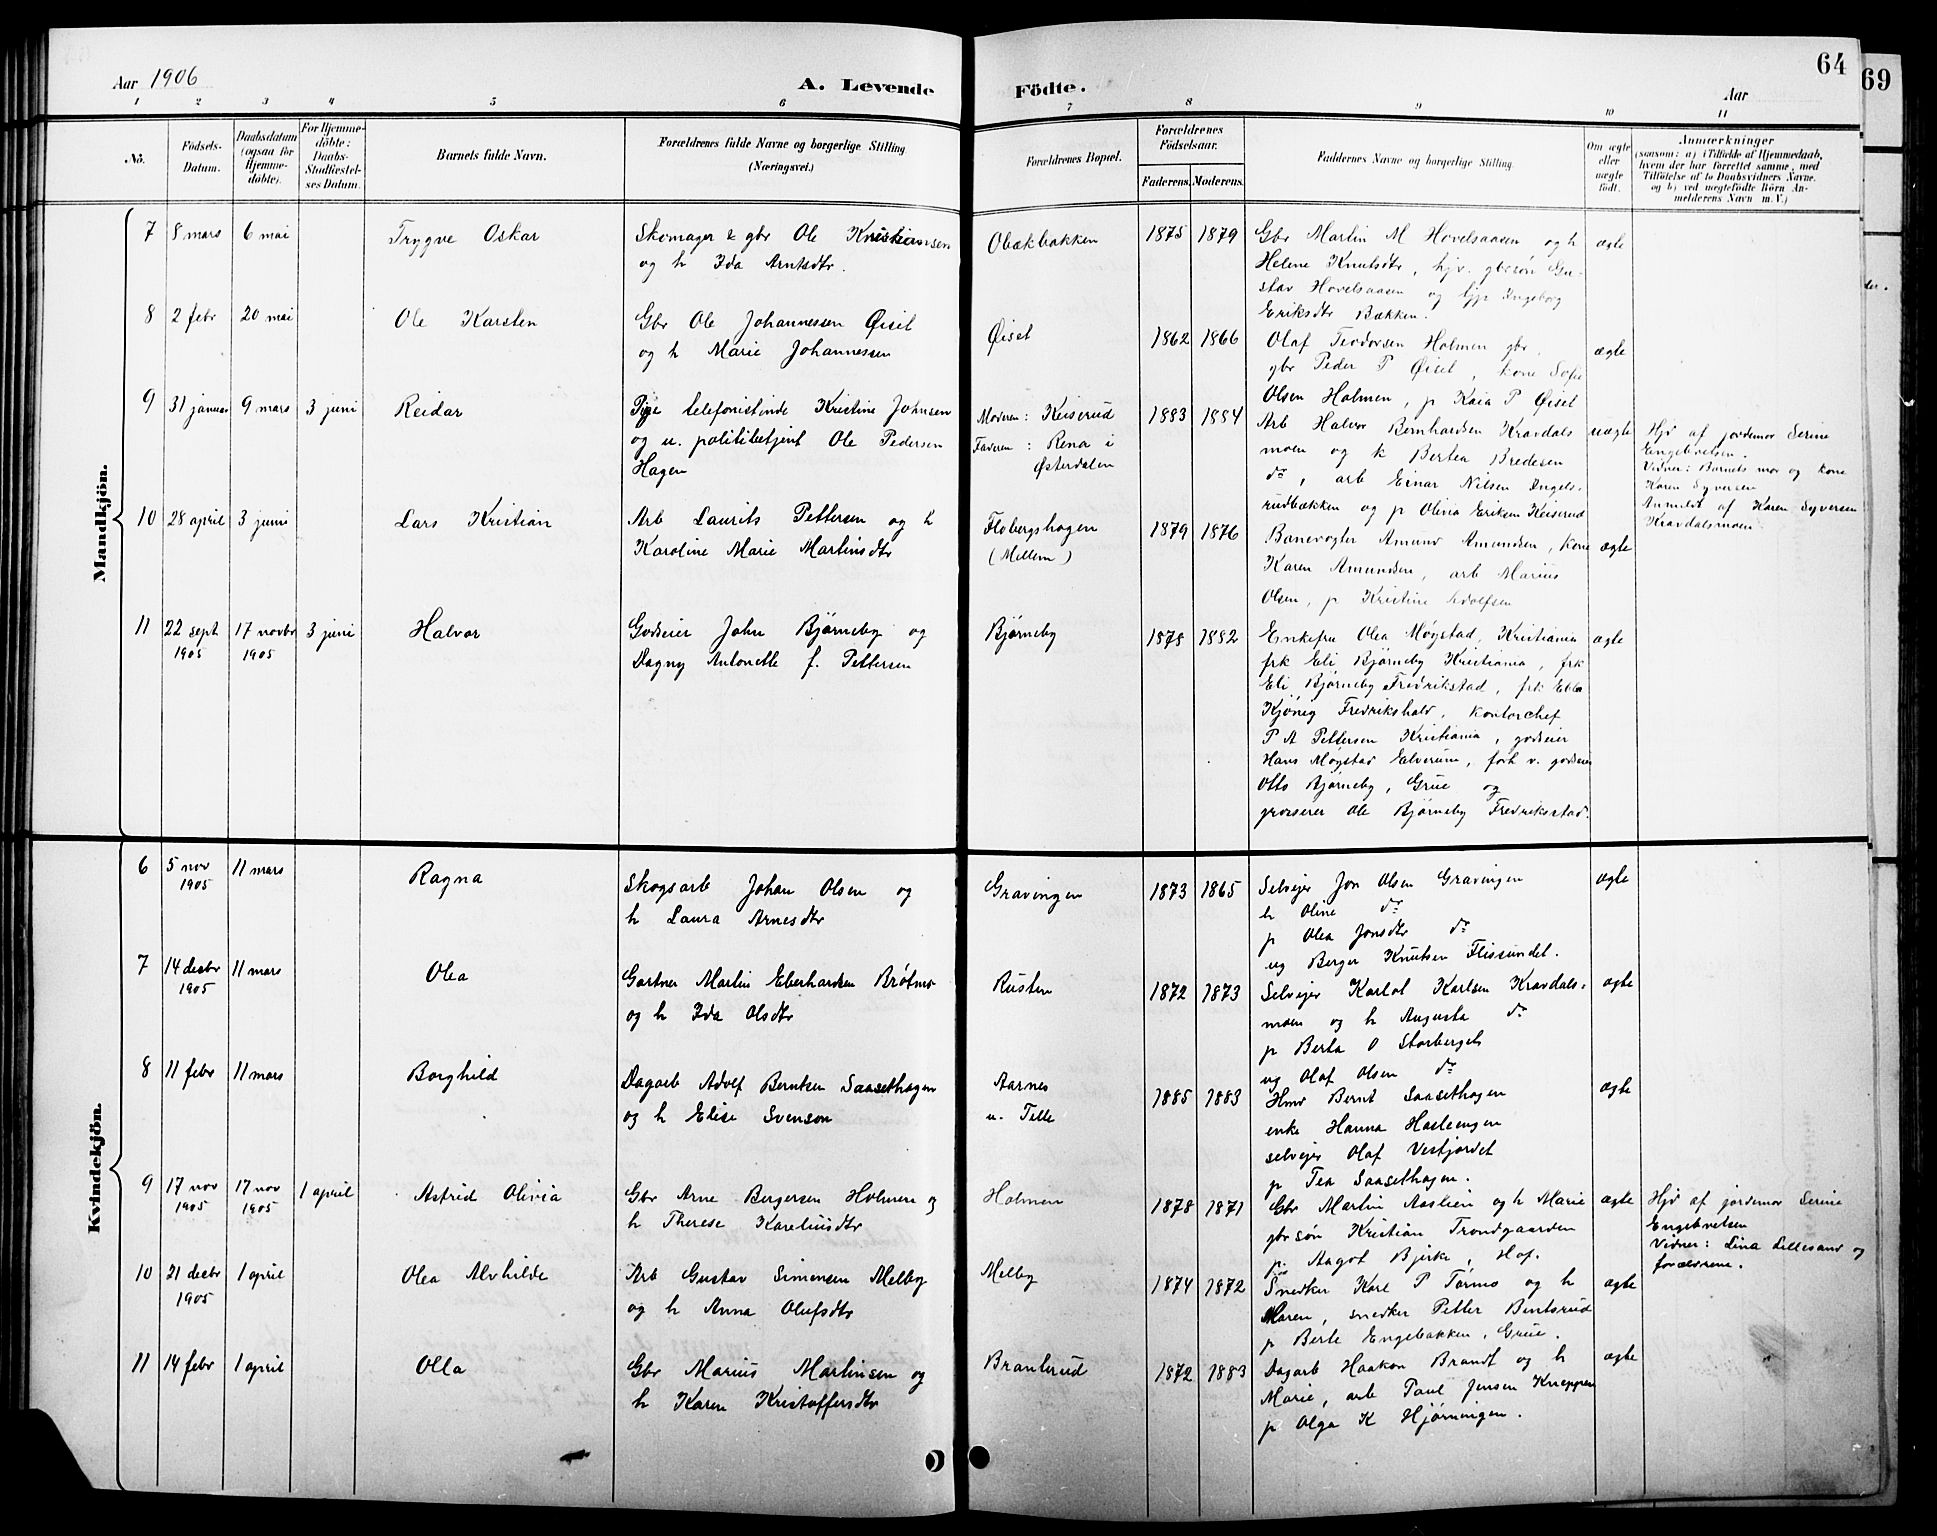 Aar 1906
A. Levende Födte.
Aar
64
69
1 2 3 4 5 6 7 8 9 10 11
Nô.
Födsels-
Datum.
Daabsdatum
(ogsaa for
Hjemme-
döbte).
For Hjemme-
döbte:
Daabs-
Stadfæstel-
ses Datum.
Barnets fulde Navn.
Forældrenes fulde Navne og borgerlige Stilling
(Næringsvei.)
Forældrenes Bopæl.
Forældrenes
Födselsaar.
Faderens. Moderens.
Faddernes Navne og borgerlige Stilling.
Om ægte
eller
uægte
født.
Anmærkninger
(saasom: a) i Tilfælde af Hjemmedaab,
hvem der har forrettet samme, med
Tilföielse af to Daabsvidners Navne.
og b) ved uægtefödte Börn An-
melderens Navn m. V.)
Mandkjön.
7 8 mars 6 mai
Trygve Oskar
Skomager & gbr Ole Kristiansen
og h Ida Arntsdtr.
Obækbakken
1875 1879
Gbr Martin M Hovelsaasen og h
Helene Knutsdtr, hjv. gbrsøn Gu-
stav Hovelsaasen og Ingeborg
Eriksdtr Bækken.
ægte
8 2 febr 20 mai
Ole Karsten
Gbr Ole Johannessen Øiset
og h Marie Johannessen
Øiset
1862 1866
Olaf Teodorsen Holmen gbr,
gbr Peder P Øiset, kone Sofie
Olsen Holmen, p Kaia P Øiset
ægte
9 31 januar 9 mars 3 juni
Reidar
Pige telefonistinde Kristine Johnsen
og u. politibetjent Ole Pedersen
Hagen
Moderen: Keiserud
Faderen: Rena i
Østerdalen
1883 1884
Arb Halvor Bernhardsen Kravdals
moen og k Bertea Bredesen
do, arb Einar Nilsen Ingels-
rudbækken og p Olivia Eriksen Keiserud
uægte
Hjd af jordemor Serine
Engebretsen.
Vidner: Barnets mor og kone
Karen Syversen
Anmeldt af Karen Syversen
Kravdalsmoen
10 28 april 3 juni
Lars Kristian
Arb Laurits Pettersen og h
Karoline Marie Martinsdtr
Flobergshagen
(Mellem)
1879 1876
Banevogter Amund Amundsen, kone
Karen Amundsen, arb Marius
Olsen, p Kristine Adolfsen
ægte
11 22 sept 17 novbr 3 juni
1905 1905
Halvor
Godseier John Bjørneby og
Dagny Antonette f. Pettersen
Bjørneby
1878 1882
Enkefru Olea Møystad, Kristiania
frk Eli Bjørneby Kristiania, frk
Eli Bjørneby Fredrikstad, frk Ebba
Kjønig Fredrikshald, kontorchef
P A Pettersen Kristiania, godseier
Hans Møystad Elverum, forh v. godseier
Otto Bjørneby, Grue og
grosserer Ole Bjørneby Fredriksstad.
ægte
Kvindekjön.
6 5 nov 11 mars
1905
Ragna
Skogsarb Johan Olsen og
h Laura Arnesdtr
Gravingen
1873 1865
Selvejer Jon Olsen Gravingen
h Oline do
p Olea Jonsdtr do
ug Berger Knutsen Flissundet.
ægte
7 14 decbr 11 mars
1905
Olea
Gartner Martin Eberhardsen Brøtmo
og h Ida Olsdtr
Rusten
1872 1873
Selvejer Karlot Karlsen Kravdals-
moen og h Augusta do
p Berta O Storberget
ug Olaf Olsen do
ægte
8 11 febr 11 mars
Borghild
Dagarb Adolf Berntsen Saasethagen
og h Elise Svenson
Aarnes
u. Telle
1885 1883
Hmd Bernt Saasethagen
enke Hanna Hasleengen
selvejer Olaf Vestjordet
p Tea Saasethagen.
ægte
9 17 nov 17 nov 1 april
1905 1905
Astrid Olivia
Gbr Arne Bergersen Holmen og
h Therese Kareliusdtr
Holmen
1878 1871
Gbr Martin Aaslien og h Marie
gbrsøn Kristian Trondgaarden
p. Aagot Bjerke, Hof.
ægte
Hjd af jordemor Serine
Engebretsen
Vidner: Lina Lillesand og
forældrene.
10 21 decbr 1 april
1905
Olea Alvhilde
Arb Gustav Simensen Melby
og h Anna Olufsdtr
Melby
1874 1872
Snedker Karl P Tørmo og h
Maren, snedker Petter Bentsrud
p Berte Engebakken, Grue.
ægte
11 14 febr 1 april
Olla
Gbr Marius Martinsen og
h Karen Kristoffersdtr
Branterud
1872 1883
Dagarb Haakon Brandt og h
Marie, arb Paul Jensen Knappen
p Olga K Hjørningen.
ægte